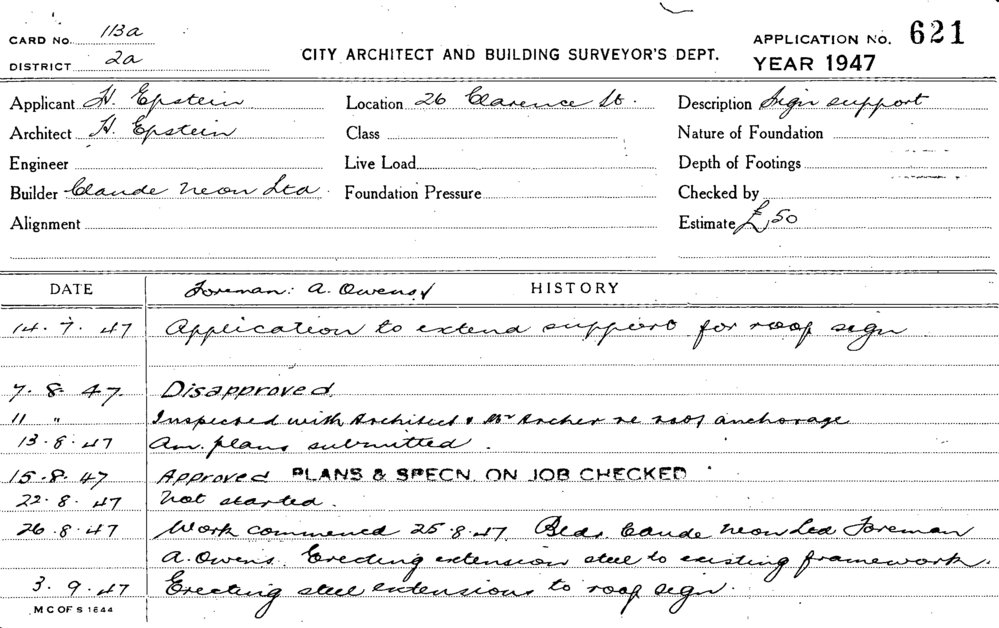 CARD No. 113a
DISTRICT 2a
CITY ARCHITECT AND BUILDING SURVEYOR'S DEPT.
APPLICATION No. 621
YEAR 1947
Applicant H. Epstein Location 26 Clarence St. Description Sign support
Architect H. Epstein Class Nature of Foundation
Engineer Live Load Depth of Footings
Builder Claude Neon Ltd. Foundation Pressure Checked by
Alignment Estimate £50
DATE Foreman: A. Owens HISTORY
14.7.47 Application to extend support for roof sign
7.8.47. Disapproved.
11 " Inspected with Architect & Mr Archer re roof anchorage
13.8.47 Am. plans submitted.
15.8.47 Approved PLANS & SPECN. ON JOB CHECKED
22.8.47 Not started.
26.8.47 Work commenced 25.8.47. Bldr. Claude Neon Ltd Foreman
A. Owens. Erecting extension steel to existing framework.
3.9.47 Erecting steel extensions to roof sign.
M C OF S 1644